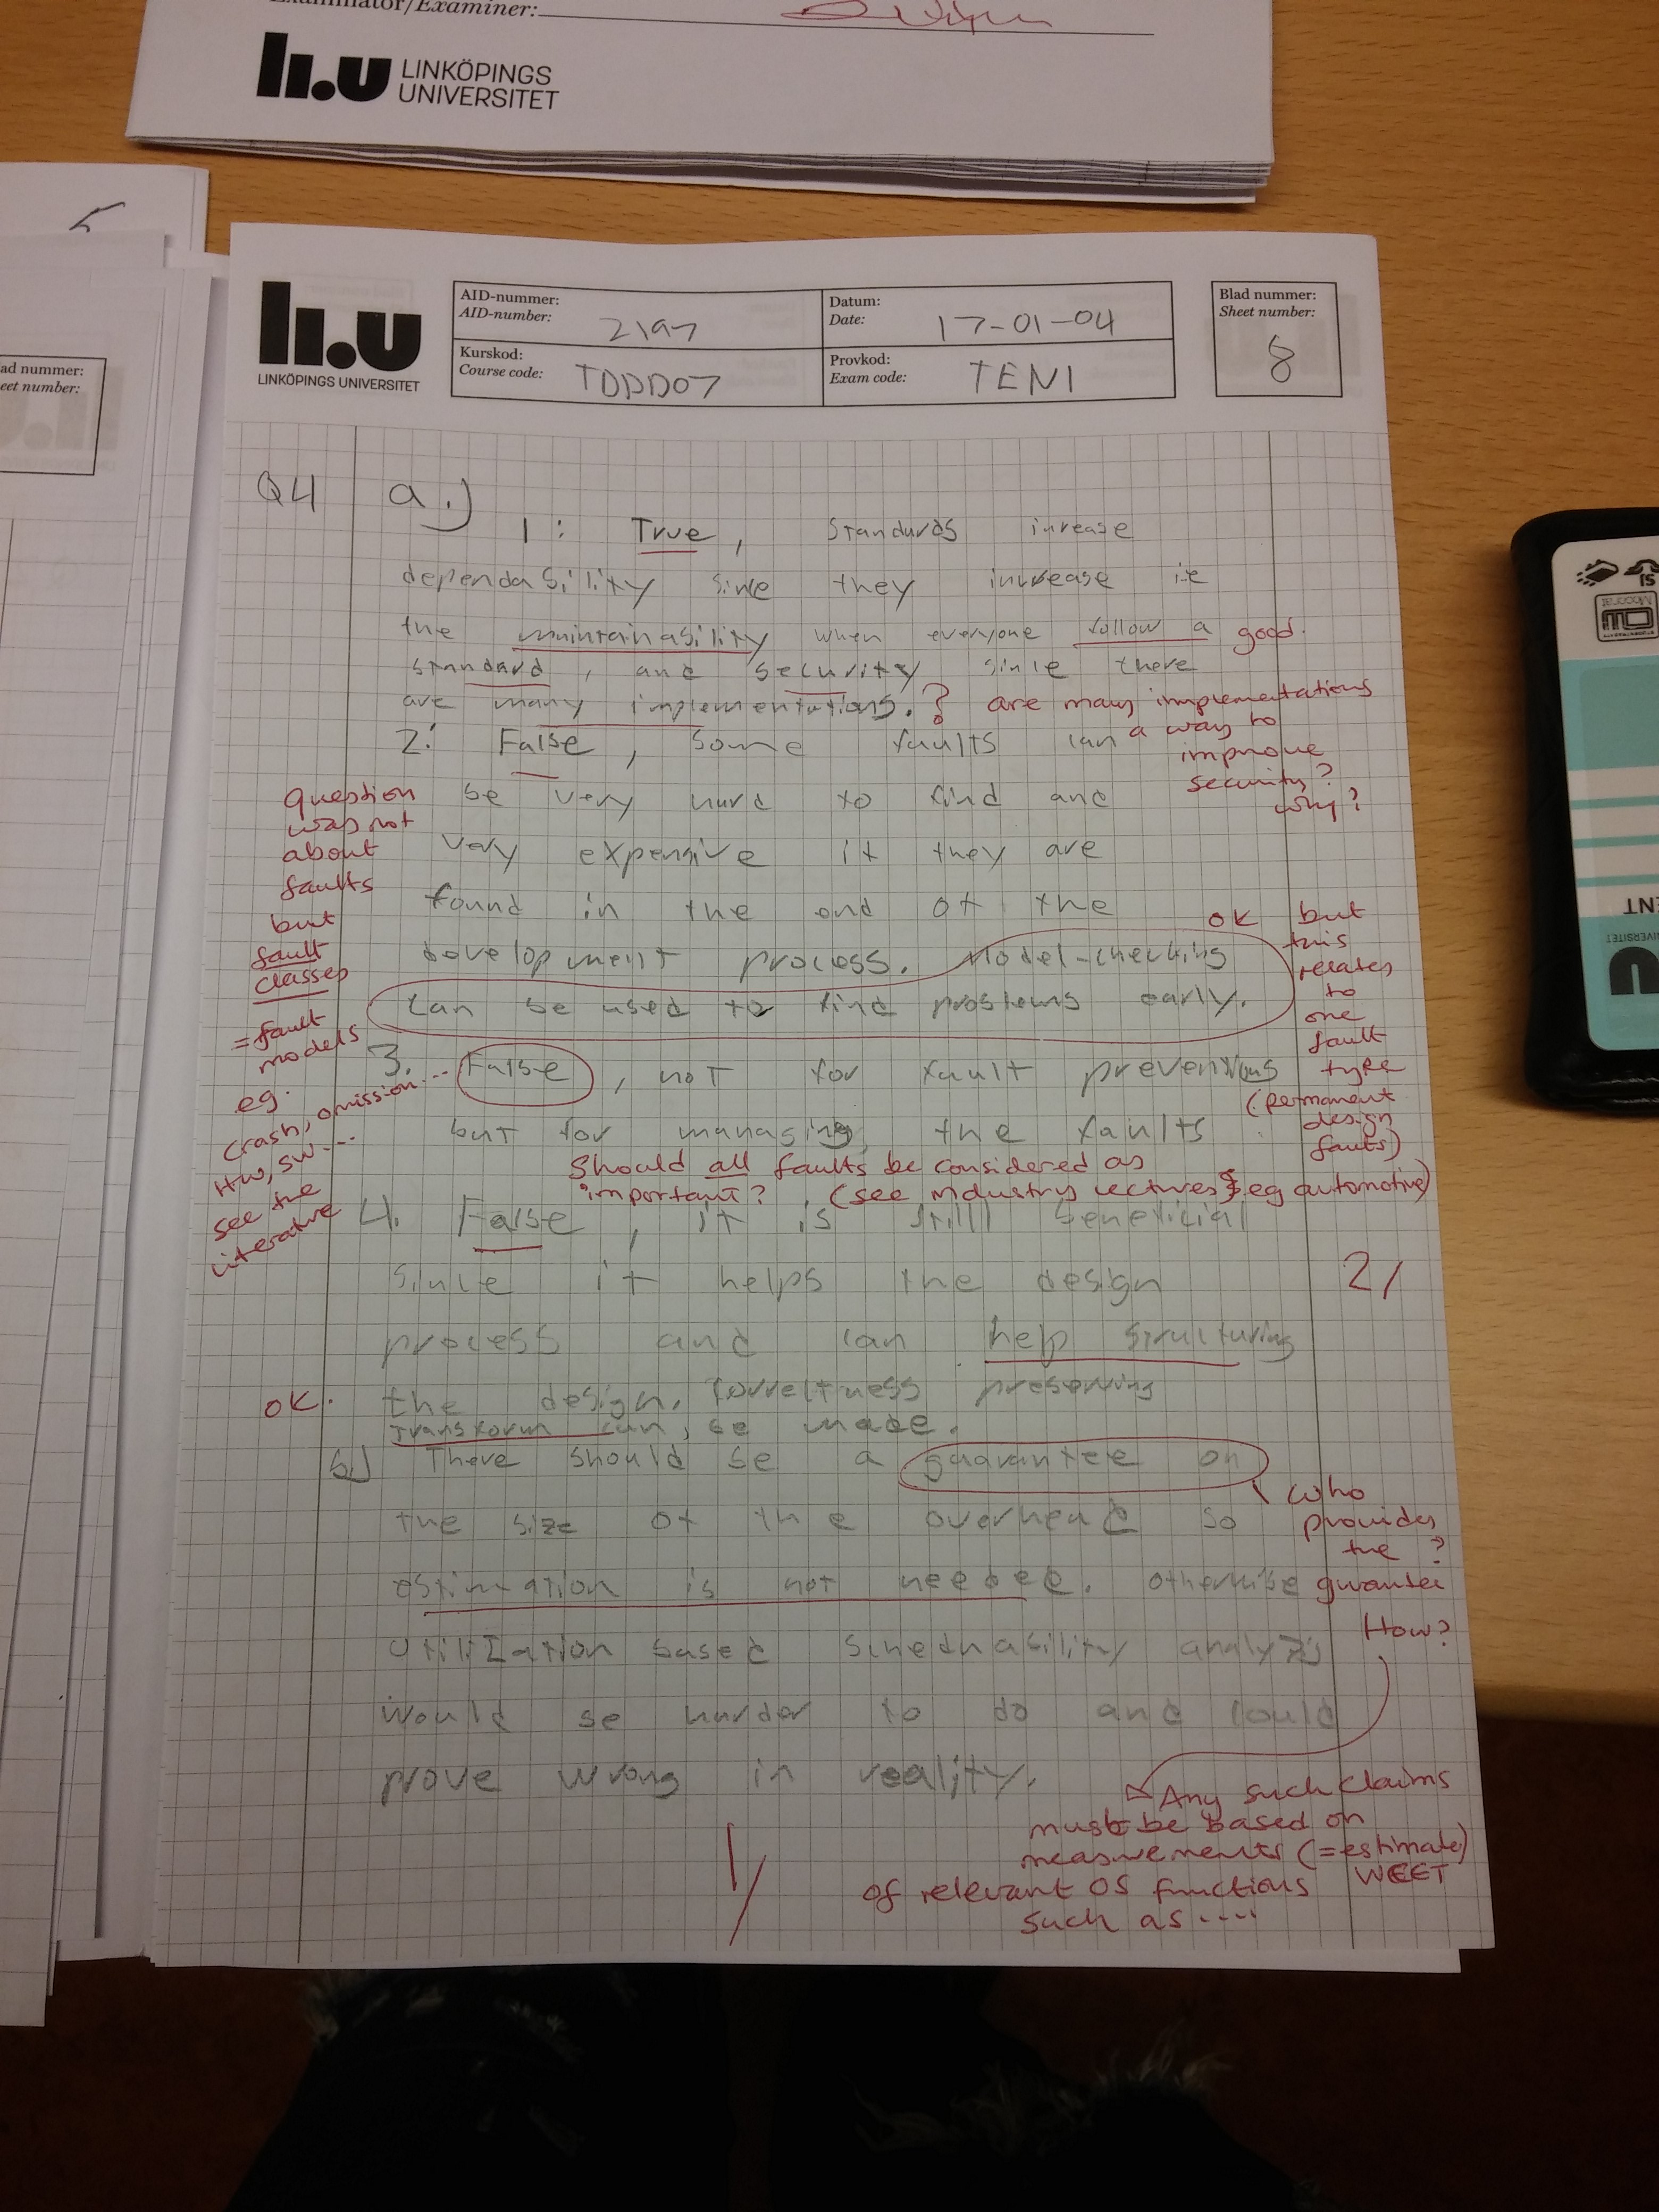 Examinator/Examiner:
LINKÖPINGS
UNIVERSITET
li.u
LINKÖPINGS UNIVERSITET
AID-nummer:
AID-number:
2197
Datum:
Date:
17-01-04
Kurskod:
Course code:
TDDD07
Provkod:
Exam code:
TEN1
Blad nummer:
Sheet number:
8
ad nummer:
eet number:
Q4 a.)
1: True, Standards inrease
dependability since they increase i.e
the maintainability when everyone follow a good.
standard, and security since there
are many implementations. ? are many implementations
a way to
improve
security?
why?
2: False, some faults can
be very hard to find and
very expensive if they are
found in the end of the
development process. Model-checking
can be used to find problems early.
question
was not
about
faults
but
fault
classes
= fault
models
eg.
crash, omission...
HW, SW...
see the
literature
ok but
this
relates
to
one
fault
type
(permanent
design
faults)
3. False, not for fault preventions
but for managing the faults
Should all faults be considered as
important? (see industry lectures eg automotive)
4. False, it is still beneficial
since it helps the design
process and can help structuring
the design. Correctness preserving
transform can be made.
ok.
2/
b.) There should be a guarantee on
the size of the overhead so
estimation is not needed. Otherwise
utilization based schedulability analyzis
would be harder to do and could
prove wrong in reality.
who
provides
the ?
guarantee
How?
Any such claims
must be based on
measurements (=estimate)
of relevant OS functions WCET
such as ....
1/